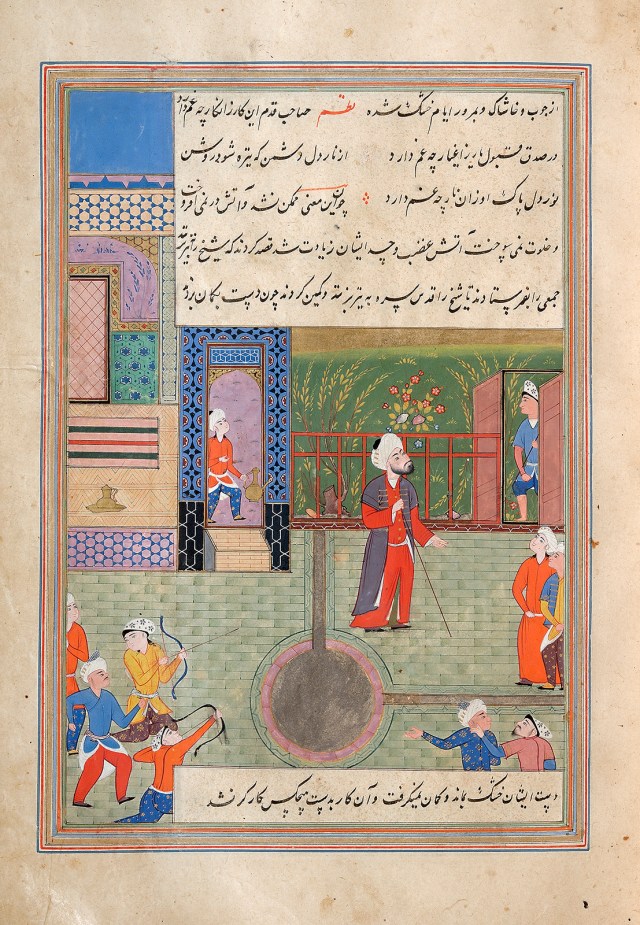 از چوب و خاشاک و بمرور ایام خشک شده نظم صاحب قدم این کار ز انکار چه غم دارد
در صدق قبول ما ز اغیار چه غم دارد از نار دل دشمن که تیره شود روشن
نور دل پاک او زان نار چه غم دارد چون این معنی ممکن نشد و آتش در نمی افروخت
و خلوت نمی سوخت آتش غضب و حسد ایشان زیادت شد قصد کردند که شیخ را تیر زنند
جمعی را بفرستادند تا شیخ را قدس سره به تیر بزنند و کمین کردند چون دست بکمان بردند
دست ایشان خشک بماند و کمان نمیگرفت و آن کار بدست هیچکس کارگر نشد